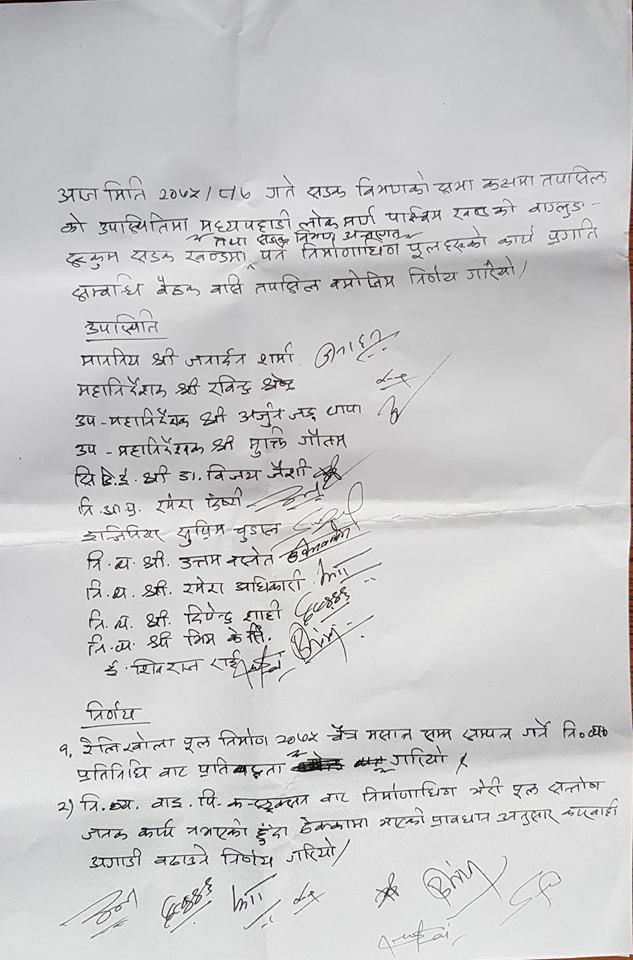 आज मिति २०७५/८/७ गते सडक विभागको सभा कक्षमा तपासिल
को उपस्थितिमा मध्यपहाडी लोकमार्ग पश्चिम खण्डको बाग्लुङ -
तथा सडक विभाग अन्तर्गत
रूकुम सडक खण्डमा पर्ने निर्माणाधिन पूलहरुको कार्य प्रगति
सम्बन्धि बैठक बसि तपासिल बमोजिम निर्णय गरियो।
उपस्थिति
माननिय श्री जनार्दन शर्मा
महानिर्देशक श्री रविन्द्र श्रेष्ठ
उप-महानिर्देशक श्री अर्जुन जङ्ग थापा
उप-महानिर्देशक श्री मुक्ति गौतम
सि.डि.ई. श्री डा. विजय जैशी
नि.आ.प्र. रमेश
इन्जिनियर सुप्रिम चुडाल
नि.व्य. श्री. उत्तम बस्नेत
नि.व्य. श्री. रमेश अधिकारी
नि.व्य. श्री. दिपेन्द्र शाही
नि.व्य. श्री भिम के.सि.
ई. शिवराज राई
निर्णय
१. शैलिखोला पूल निर्माण २०७५ चैत्र मसान्त सम्म सम्पन्न गर्ने नि.व्य.
प्रतिनिधि बाट प्रतिबद्धता गरियो
२) नि.व्य. वाइ. पि. कन्स्ट्रक्सन बाट निर्माणाधिन भेरी पूल सन्तोष
जनक कार्य नभएको हुँदा ठेक्कामा भएको प्रावधान अनुसार कारवाही
अगाडी बढाउने निर्णय गरियो।